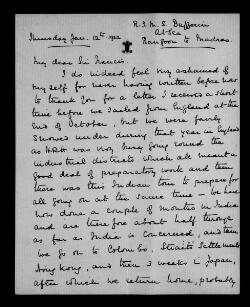 R.I.M.S. Dufferin
At Sea
Thursday Jan. 12th 1922 Rangoon to Madras.
My dear Sir Francis.
I do indeed feel very ashamed of
my self for never having written before
to thank you for a letter I received a short
time before we sailed from England at the
end of October, but we were fairly
snowed under during that year in England
as HRH was very busy going round the
industrial districts which all meant a
good deal of preparatory work and then
there was this Indian tour to prepare for
all going on at the same time - we have
now done a couple of months in India
and are therefore about half through
as far as India is concerned, and then
we go on to Colombo, Straits Settlements
Hong Kong, and then 3 weeks in Japan,
after which we return home, probably